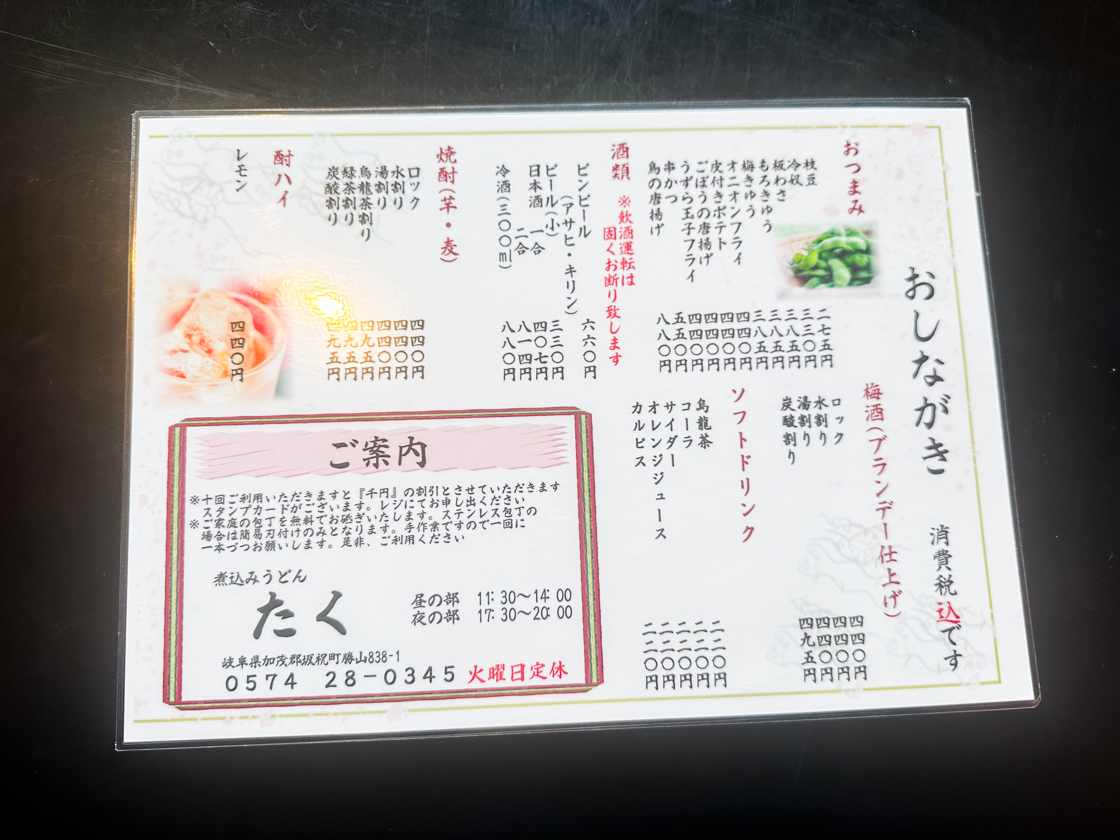 おしながき
消費税込です
おつまみ
枝豆 二七五円
冷奴 三三〇円
板わさ 三八五円
もろきゅう 三八五円
梅きゅう 三八五円
オニオンフライ 四四〇円
皮付きポテト 四四〇円
ごぼうの唐揚げ 四四〇円
うずら玉子フライ 四四〇円
串かつ 五五〇円
鳥の唐揚げ 八八〇円
酒類 ※飲酒運転は
固くお断り致します
ビンビール 六六〇円
(アサヒ・キリン)
ビール(小) 三三〇円
日本酒 一合 四〇七円
二合 八一四円
冷酒(三〇〇ml) 八八〇円
焼酎(芋・麦)
ロック 四四〇円
水割り 四四〇円
湯割り 四四〇円
烏龍茶割り 四九五円
緑茶割り 四九五円
炭酸割り 四九五円
酎ハイ
レモン 四四〇円
梅酒(ブランデー仕上げ)
ロック 四四〇円
水割り 四四〇円
湯割り 四四〇円
炭酸割り 四九五円
ソフトドリンク
烏龍茶 二二〇円
コーラ 二二〇円
サイダー 二二〇円
オレンジジュース 二二〇円
カルピス 二二〇円
ご案内
※十回ご利用いただきますと『千円』の割引とさせていただきます
スタンプカードがございます。レジにてお申し出ください
※ご家庭の包丁を無料でお砥ぎいたします。ステンレス包丁の
場合は簡易刃付けのみとなります。手作業ですので一回に
一本づつお願いします。是非、ご利用ください
煮込みうどん
たく
昼の部 11:30〜14:00
夜の部 17:30〜20:00
岐阜県加茂郡坂祝町勝山838-1
0574 28-0345 火曜日定休